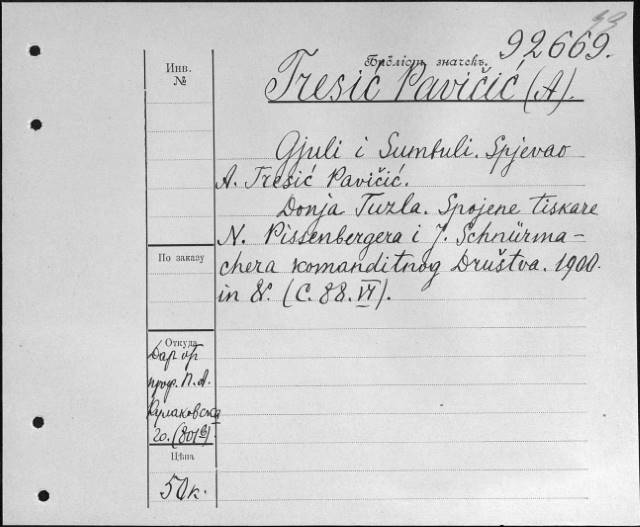 33
92669.
Библіот. значекъ.
Инв.
№
Tresić Pavičić (A).
Gjuli i Sumbuli. Spjevao
A. Tresić Pavičić.
Donja Tuzla. Spojene tiskare
N. Pissenbergera i J. Schnürma-
chera komanditnog Društva. 1900.
in 8°. (C. 88. VI).
По заказу
Откуда
Дар от
проф. П. А.
Кулаковска
го.
Цѣна
50 к.